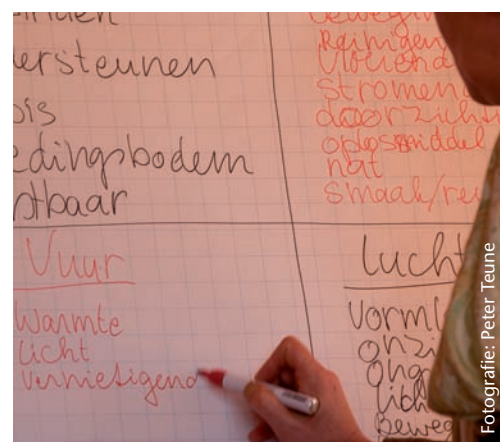 ersteunen
sis
edingsbodem
htbaar
beweging
Reinigen
Vloeiend
Stromen
doorzicht
oplosmiddel
nat
Smaak/reu
Vuur
Warmte
licht
vernietigend
lucht
vorml
onzi
ong
lich
beweg
Fotografie: Peter Teune